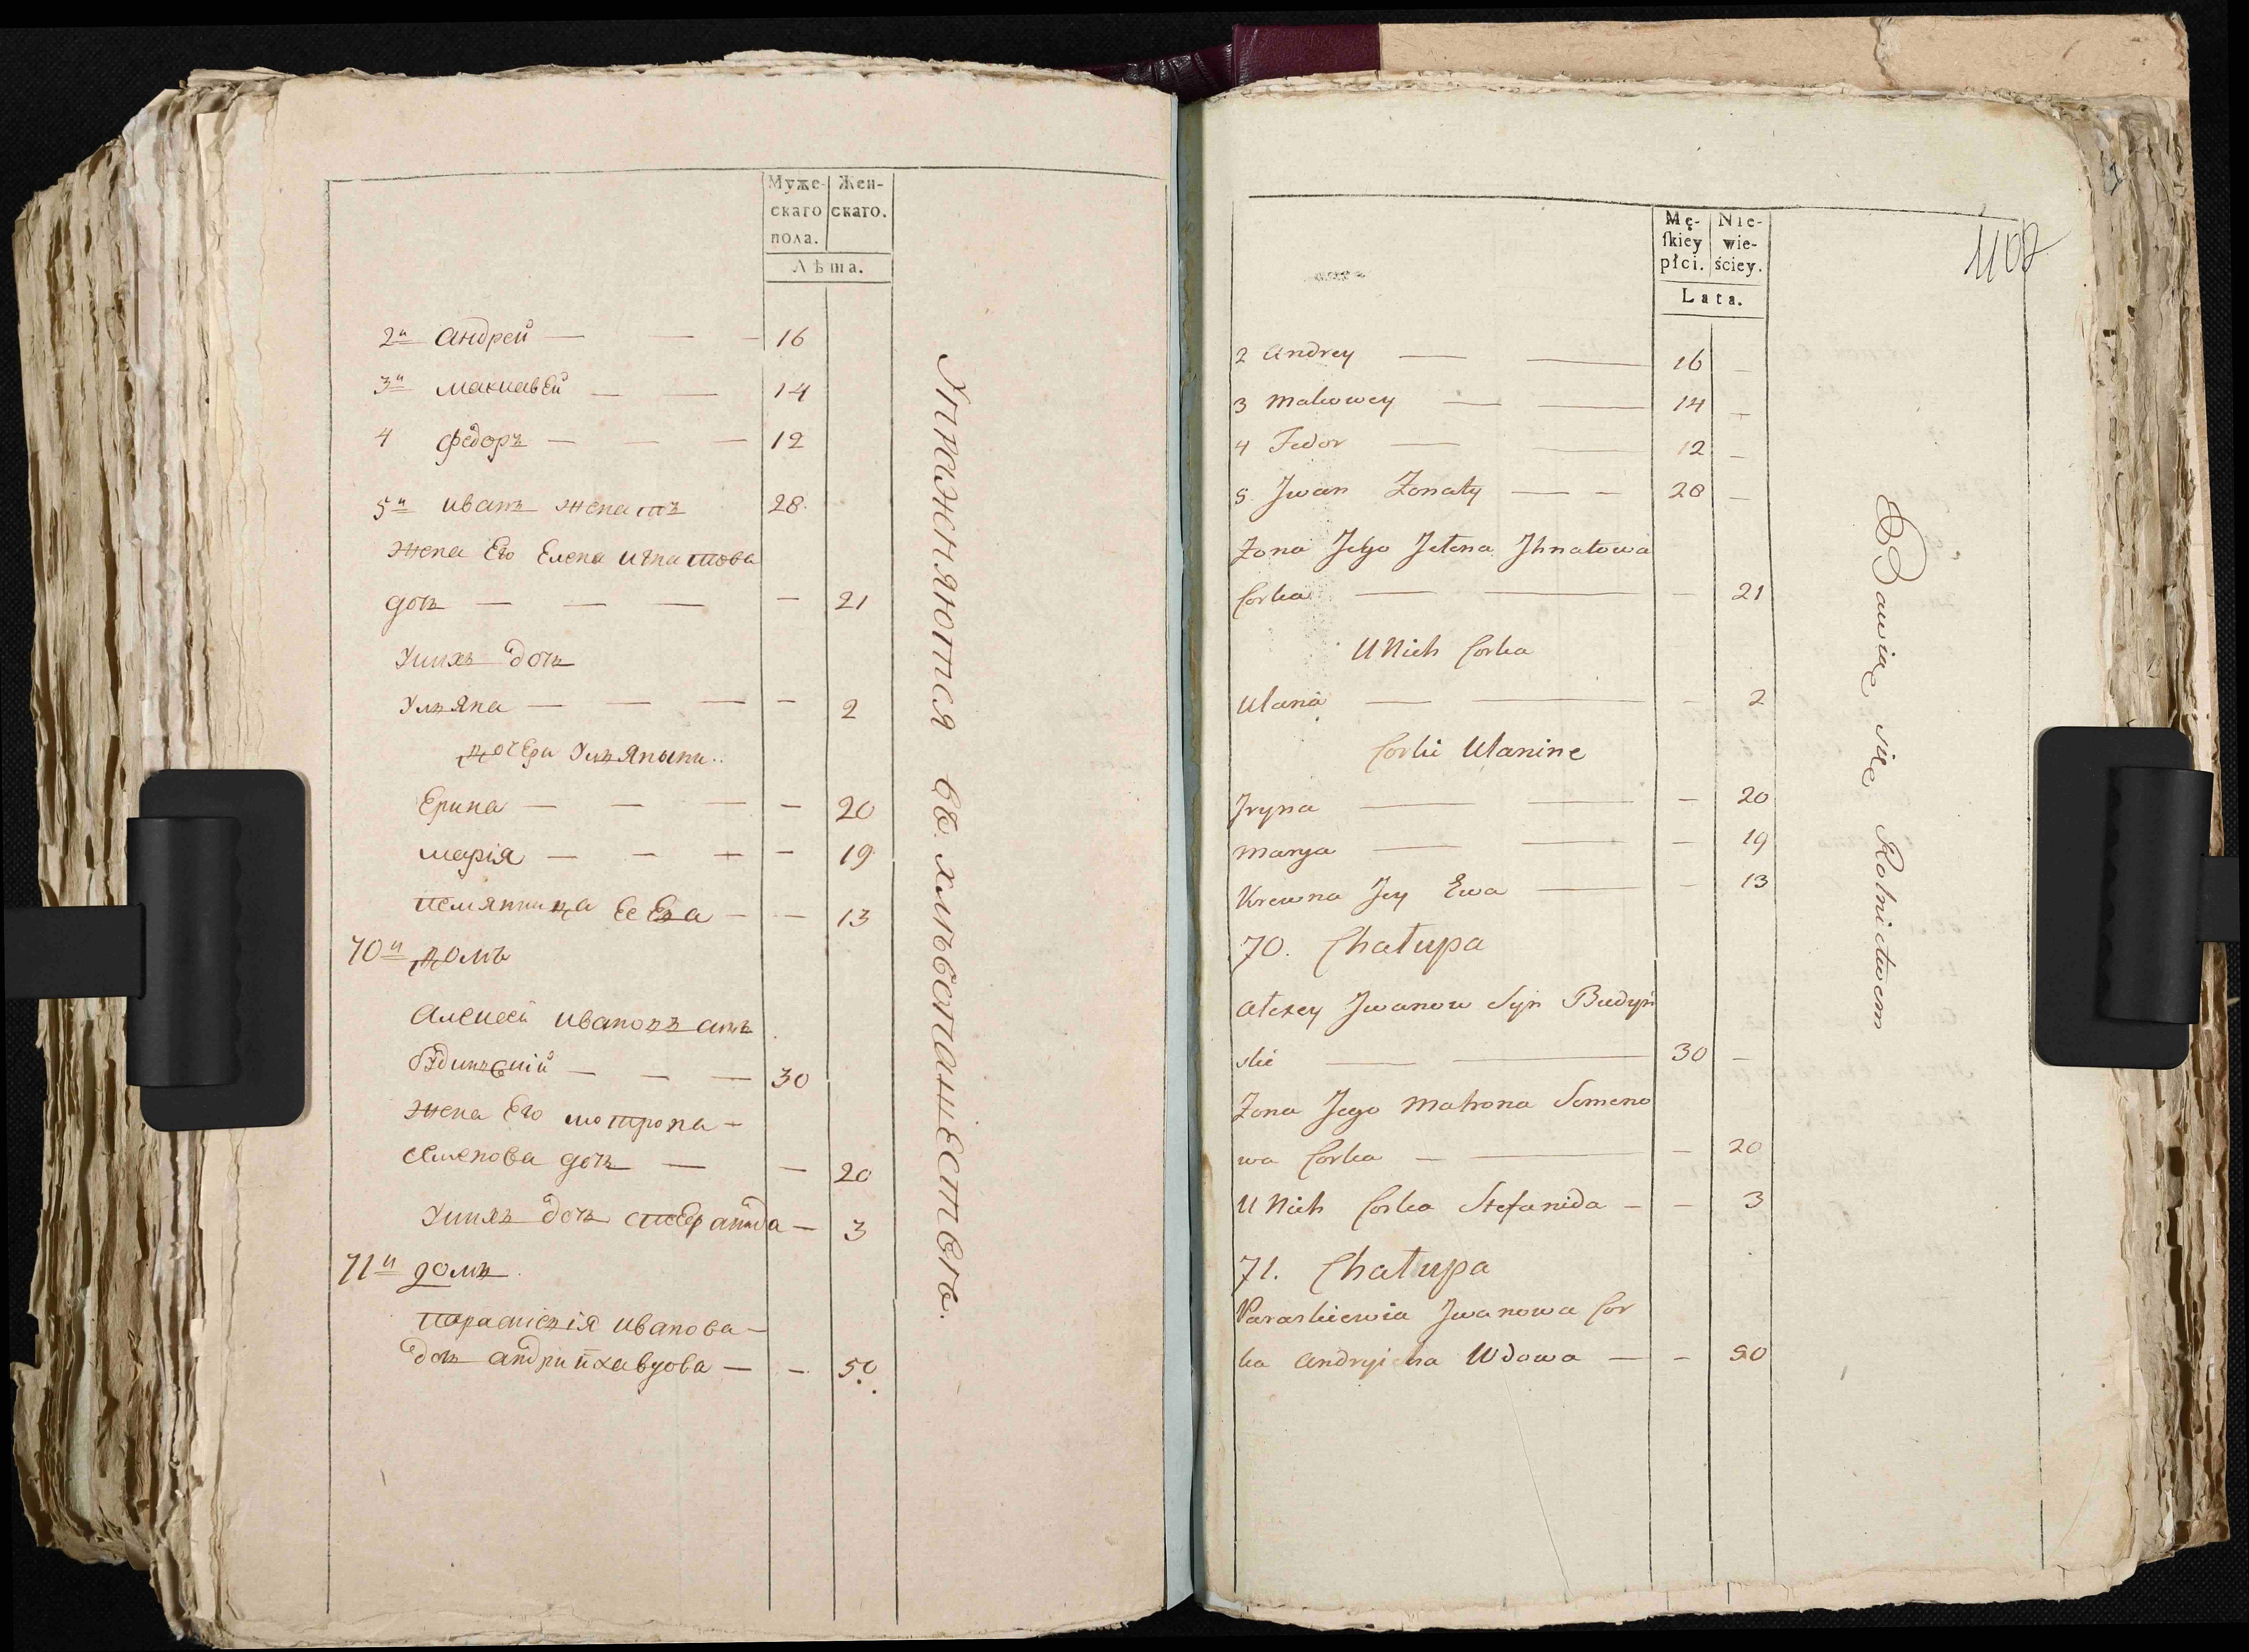 Муже- Жен-
скаго скаго.
пола.
Лѣта.
2й Андрей — — — 16
3й Макиавей — — 14
4 Федоръ — — — 12
5й иванъ женатъ 28.
жена Его Елена игнатова
дочь — — — — 21
Унихъ дочь
Ульяна — — — — 2
дочери Ульянины..
Ерина — — — — 20
марія — — — — 19
племянница Ее Ева — — 13
70й домъ
Алексей ивановъ сынъ
— — — 30
жена Его мотрона —
Семенова дочь — — 20
Унихъ дочь — 3
71й домъ.
Параскевія иванова —
дочь — — 50
Упражняются въ хлѣбопашествѣ.
Mę- Nie-
ſkiey wie-
płci. ściey.
Lata.
1108
2 Andrey — — 16 —
3 Makowey — — 14 —
4 Fedor — — 12 —
5. Jwan Żonaty — — 28 —
Żona Jego Jelena Jhnatowa
Corka — — — 21
U Nich Corka
Ulana — — — 2
Corki Ulanine
Jryna — — — 20
Marya — — — 19
Krewna Jey Ewa — — 13
70. Chałupa
Alexey Jwanow Syn Budyń
ski — — 30 —
Żona Jego Matrona Semeno
wa Corka — — — 20
U Nich Corka Stefanida — — 3
71. Chałupa
Paraskiewia Jwanowa Cor
ka Andryicha Wdowa — — 50
Bawią się Rolnictwem